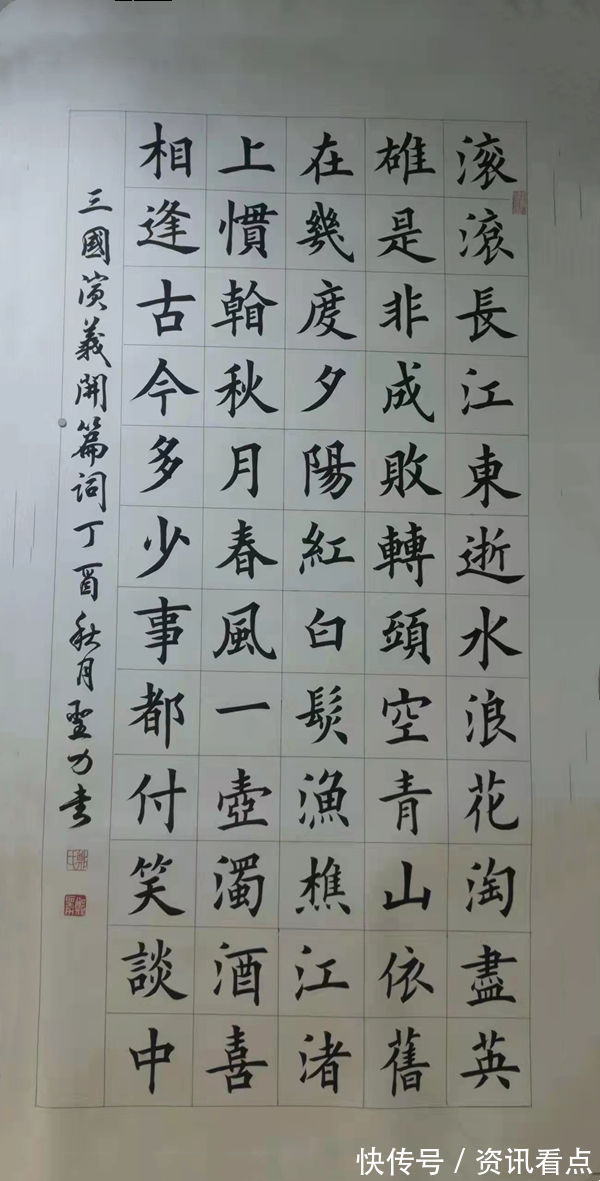 滚滚長江東逝水浪花淘盡英
雄是非成敗轉頭空青山依舊
在幾度夕陽紅白髮漁樵江渚
上慣翰秋月春風一壺濁酒喜
相逢古今多少事都付笑談中
三國演義開篇詞丁酉秋月聖力书
快传号 / 资讯看点